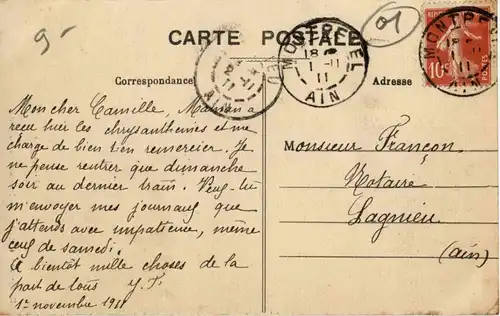 9-
01
CARTE POSTALE
Correspondance
Adresse
MONTREVEL
18
1-11
11
AIN
2-11
11
AIN
MONTREVEL
18
11
11
AIN
10c
POSTES
Mon cher Camille, Maman a
reçu hier les chrysanthèmes et me
charge de bien t'en remercier. Je
ne pense rentrer que dimanche
soir au dernier train. Veux-tu
m'envoyer mes journaux que
j'attends avec impatience, même
ceux de samedi.
A bientôt mille choses de la
part de tous Y.F.
1er novembre 1911
Monsieur Françon
Notaire
Lagnieu
(Ain)